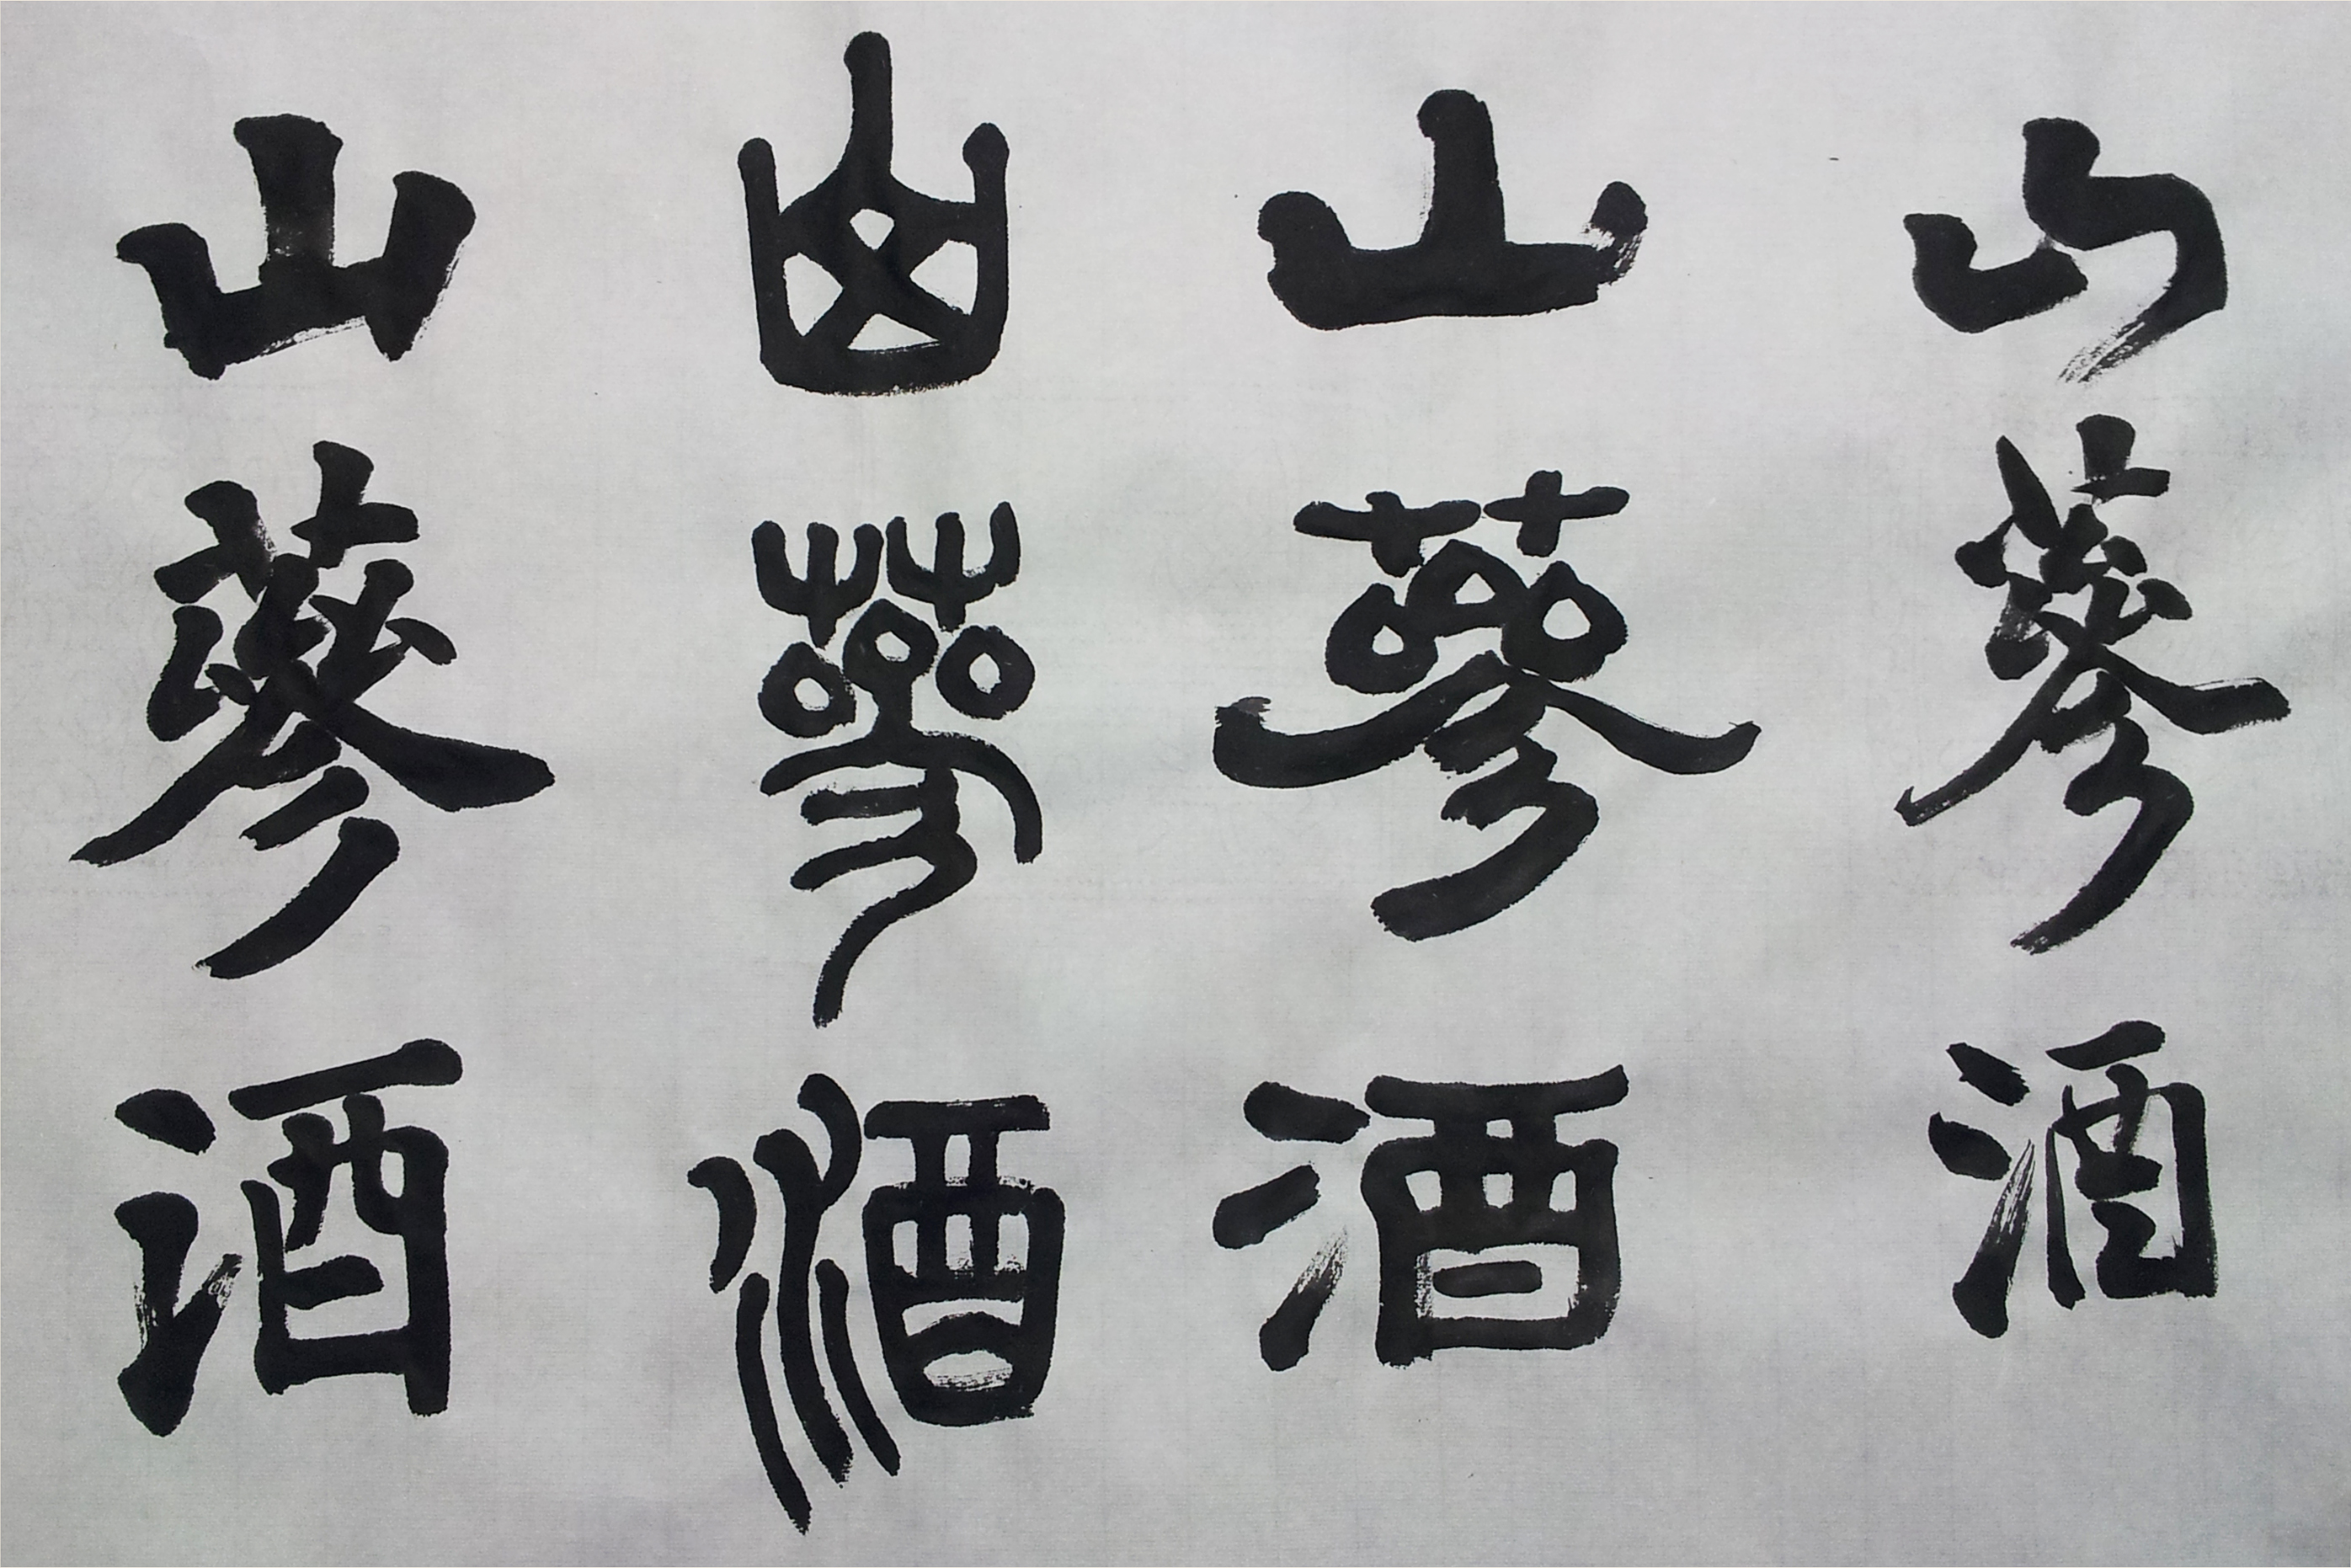 山蔘酒
山蔘酒
山蔘酒
山蔘酒